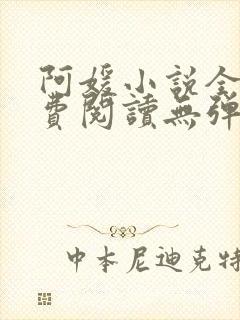 阿媛小说全
費閱讀無彈
中本尼迪克特